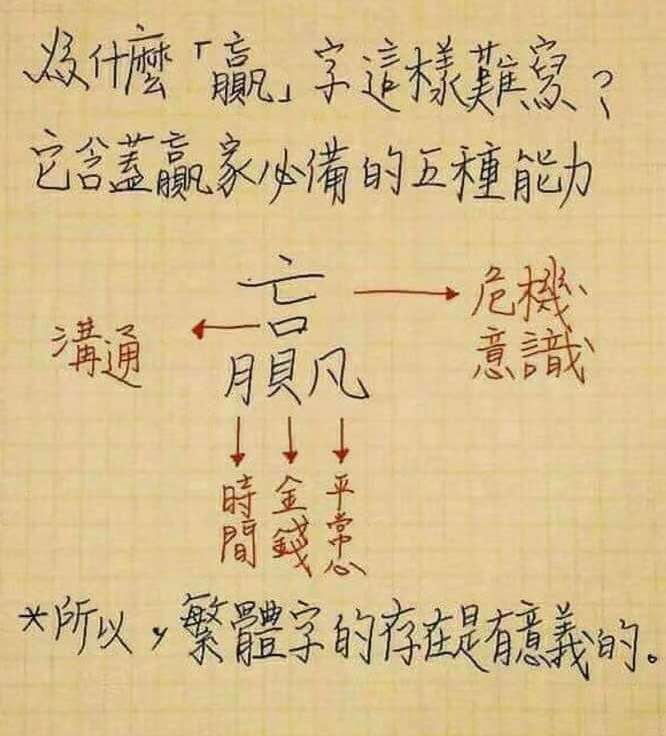 為什麼「贏」字這樣難寫？
它含蓋贏家必備的五種能力
亡口月貝凡
危機意識
溝通
時間
金錢
平常心
*所以，繁體字的存在是有意義的。